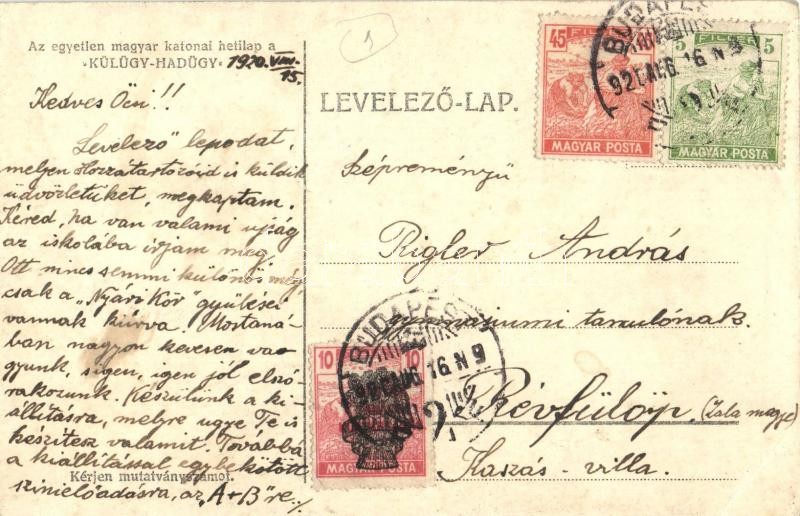 Az egyetlen magyar katonai hetilap a
»KÜLÜGY-HADÜGY« 1920. VIII.
15.
Kedves Öcsi!!
Levelező lapodat,
melyen Hozzátartozóid is küldik
üdvözletüket, megkaptam.
Kéred, ha van valami ujság
az iskolába irjam meg.
Ott nincs semmi különös még
csak a „Nyári Kör" gyűlései
vannak kiirva. Mostaná-
ban nagyon kevesen va-
gyunk, s igen, igen jól elszó-
rakozunk. Készülünk a ki-
állításra, melyre ugye Te is
készitesz valamit. Továbbá
a kiállítással egybekötött
Kérjen mutatványszámot.
szinielőadásra, az „A+B"re./.
LEVELEZŐ-LAP.
45 FILLÉR
MAGYAR POSTA
5 FILLÉR 5
MAGYAR POSTA
BUDAPEST
920 AUG 16 N 9
Szépreményü
Rigler András
gymnáziumi tanulónak.
10 10
MAGYAR POSTA
BUDAPEST
920 AUG 16 N 9
Révfülöp (Zala megye)
Kaszás-villa.